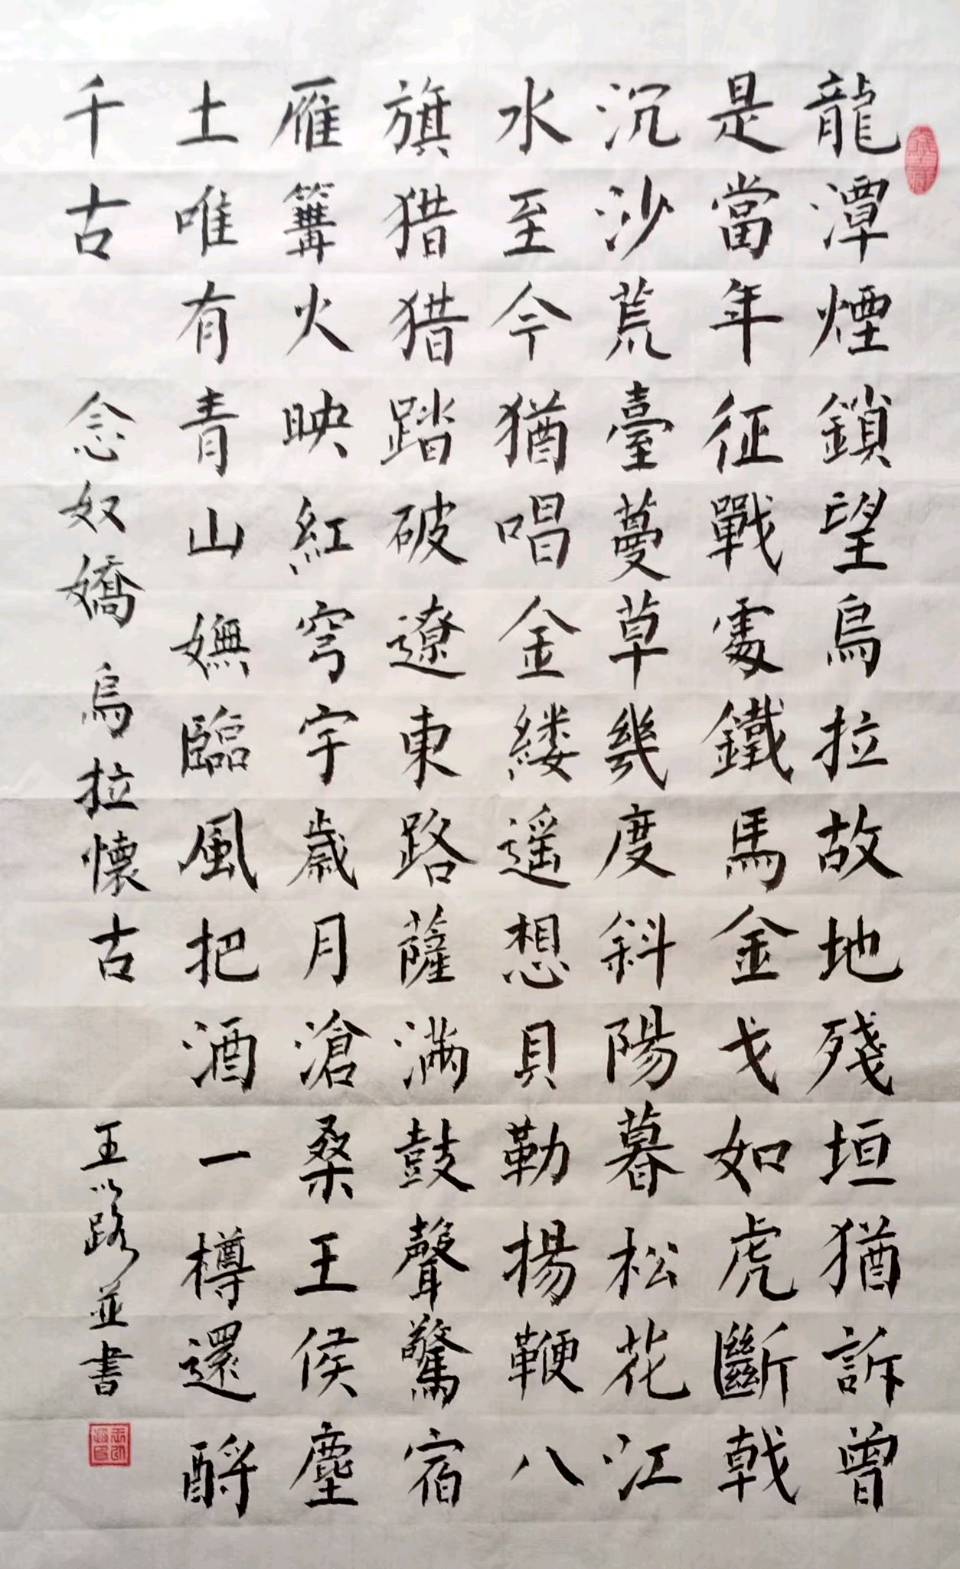 龍潭煙鎖望烏拉故地殘垣猶訴曾
是當年征戰處鐵馬金戈如虎斷戟
沉沙荒臺蔓草幾度斜陽暮松花江
水至今猶唱金縷遥想貝勒揚鞭八
旗猎猎踏破遼東路薩满鼓聲驚宿
雁篝火映紅穹宇歲月滄桑王侯塵
土唯有青山嫵臨風把酒一樽還酹
千古
念奴嬌 烏拉懷古
王以路並書